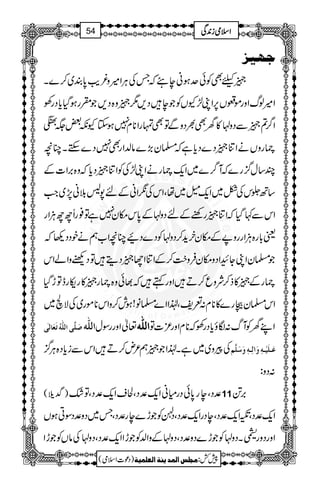 54
اسلامی زندگی
جہیز
جہیز کیلئے بھی کوئی حد ہونی چاہئے کہ جس کی ہر امیر و غریب پابندی کرے۔
امیر لوگ اور موقعوں پر اپنی لڑکیوں کو جو چاہیں دیں مگر جہیز وہ دیں جو مقرر ہو گیا یاد رکھو
اگر تم جہیز سے دولہا کا گھر بھی بھر دو گے تو بھی تمہارا نام نہیں ہو سکتا کیونکہ بعض جگہ بھنگی
چماروں نے اتنا جہیز دے دیا ہے کہ مسلمان بڑے مالدار بھی نہیں دے سکتے۔ چنانچہ
چند سال گزرے کہ آگرہ میں ایک چمار نے اپنی لڑکی کو اتنا جہیز دیا کہ وہ بارات کے
ساتھ جلوس کی شکل میں ایک میل میں تھا، اس کی نگرانی کے لئے پولیس بلانی پڑی جب
اس سے کہا گیا کہ اتنا جہیز رکھنے کے لئے دولہا کے پاس مکان نہیں ہے تو فوراً چھ ہزار
یعنی بارہ ہزار روپے کے مکان خرید کر دولہا کو دے دیئے چنانچہ اب ہم نے خود دیکھا کہ
جو مسلمان اپنی جائیداد و مکان فروخت کر کے اتنا اچھا جہیز دیتے ہیں تو دیکھنے والے اس
چمار کے جہیز کا ذکر شروع کر دیتے ہیں اور کہتے ہیں کہ بھائی وہ چمار جہیز کا ریکارڈ توڑ گیا
اس مسلمان بیچارے کا نام نہ تعریف، لہٰذا اے مسلمانو! ہوش کرو اس ناموری کی لالچ میں
اپنے گھر کو آگ نہ لگاؤ یاد رکھو کہ نام اور عزت تو اللہ تعالیٰ اور رسول اللہ صَلَّی اللہُ تَعَالٰی
عَلَیْہِ وَاٰلِہٖ وَسَلَّم کی پیروی میں ہے۔ لہٰذا جو جہیز ہم عرض کرتے ہیں اس سے زیادہ ہرگز
نہ دو:
برتن 11 عدد، چار پائی درمیانی ایک عدد، لحاف ایک عدد، توشک (گدیلا)
ایک عدد، تکیہ ایک عدد، چادر ایک عدد، دلہن کو جوڑے چار عدد، جس میں دو عدد سوتی ہوں
اور دو ریشمی۔ دولہا کو جوڑے دو عدد، دولہا کے والد کو جوڑا ایک عدد، دولہا کی ماں کو جوڑا
پیش کش: مجلس المدینۃ العلمیۃ (دعوتِ اسلامی)